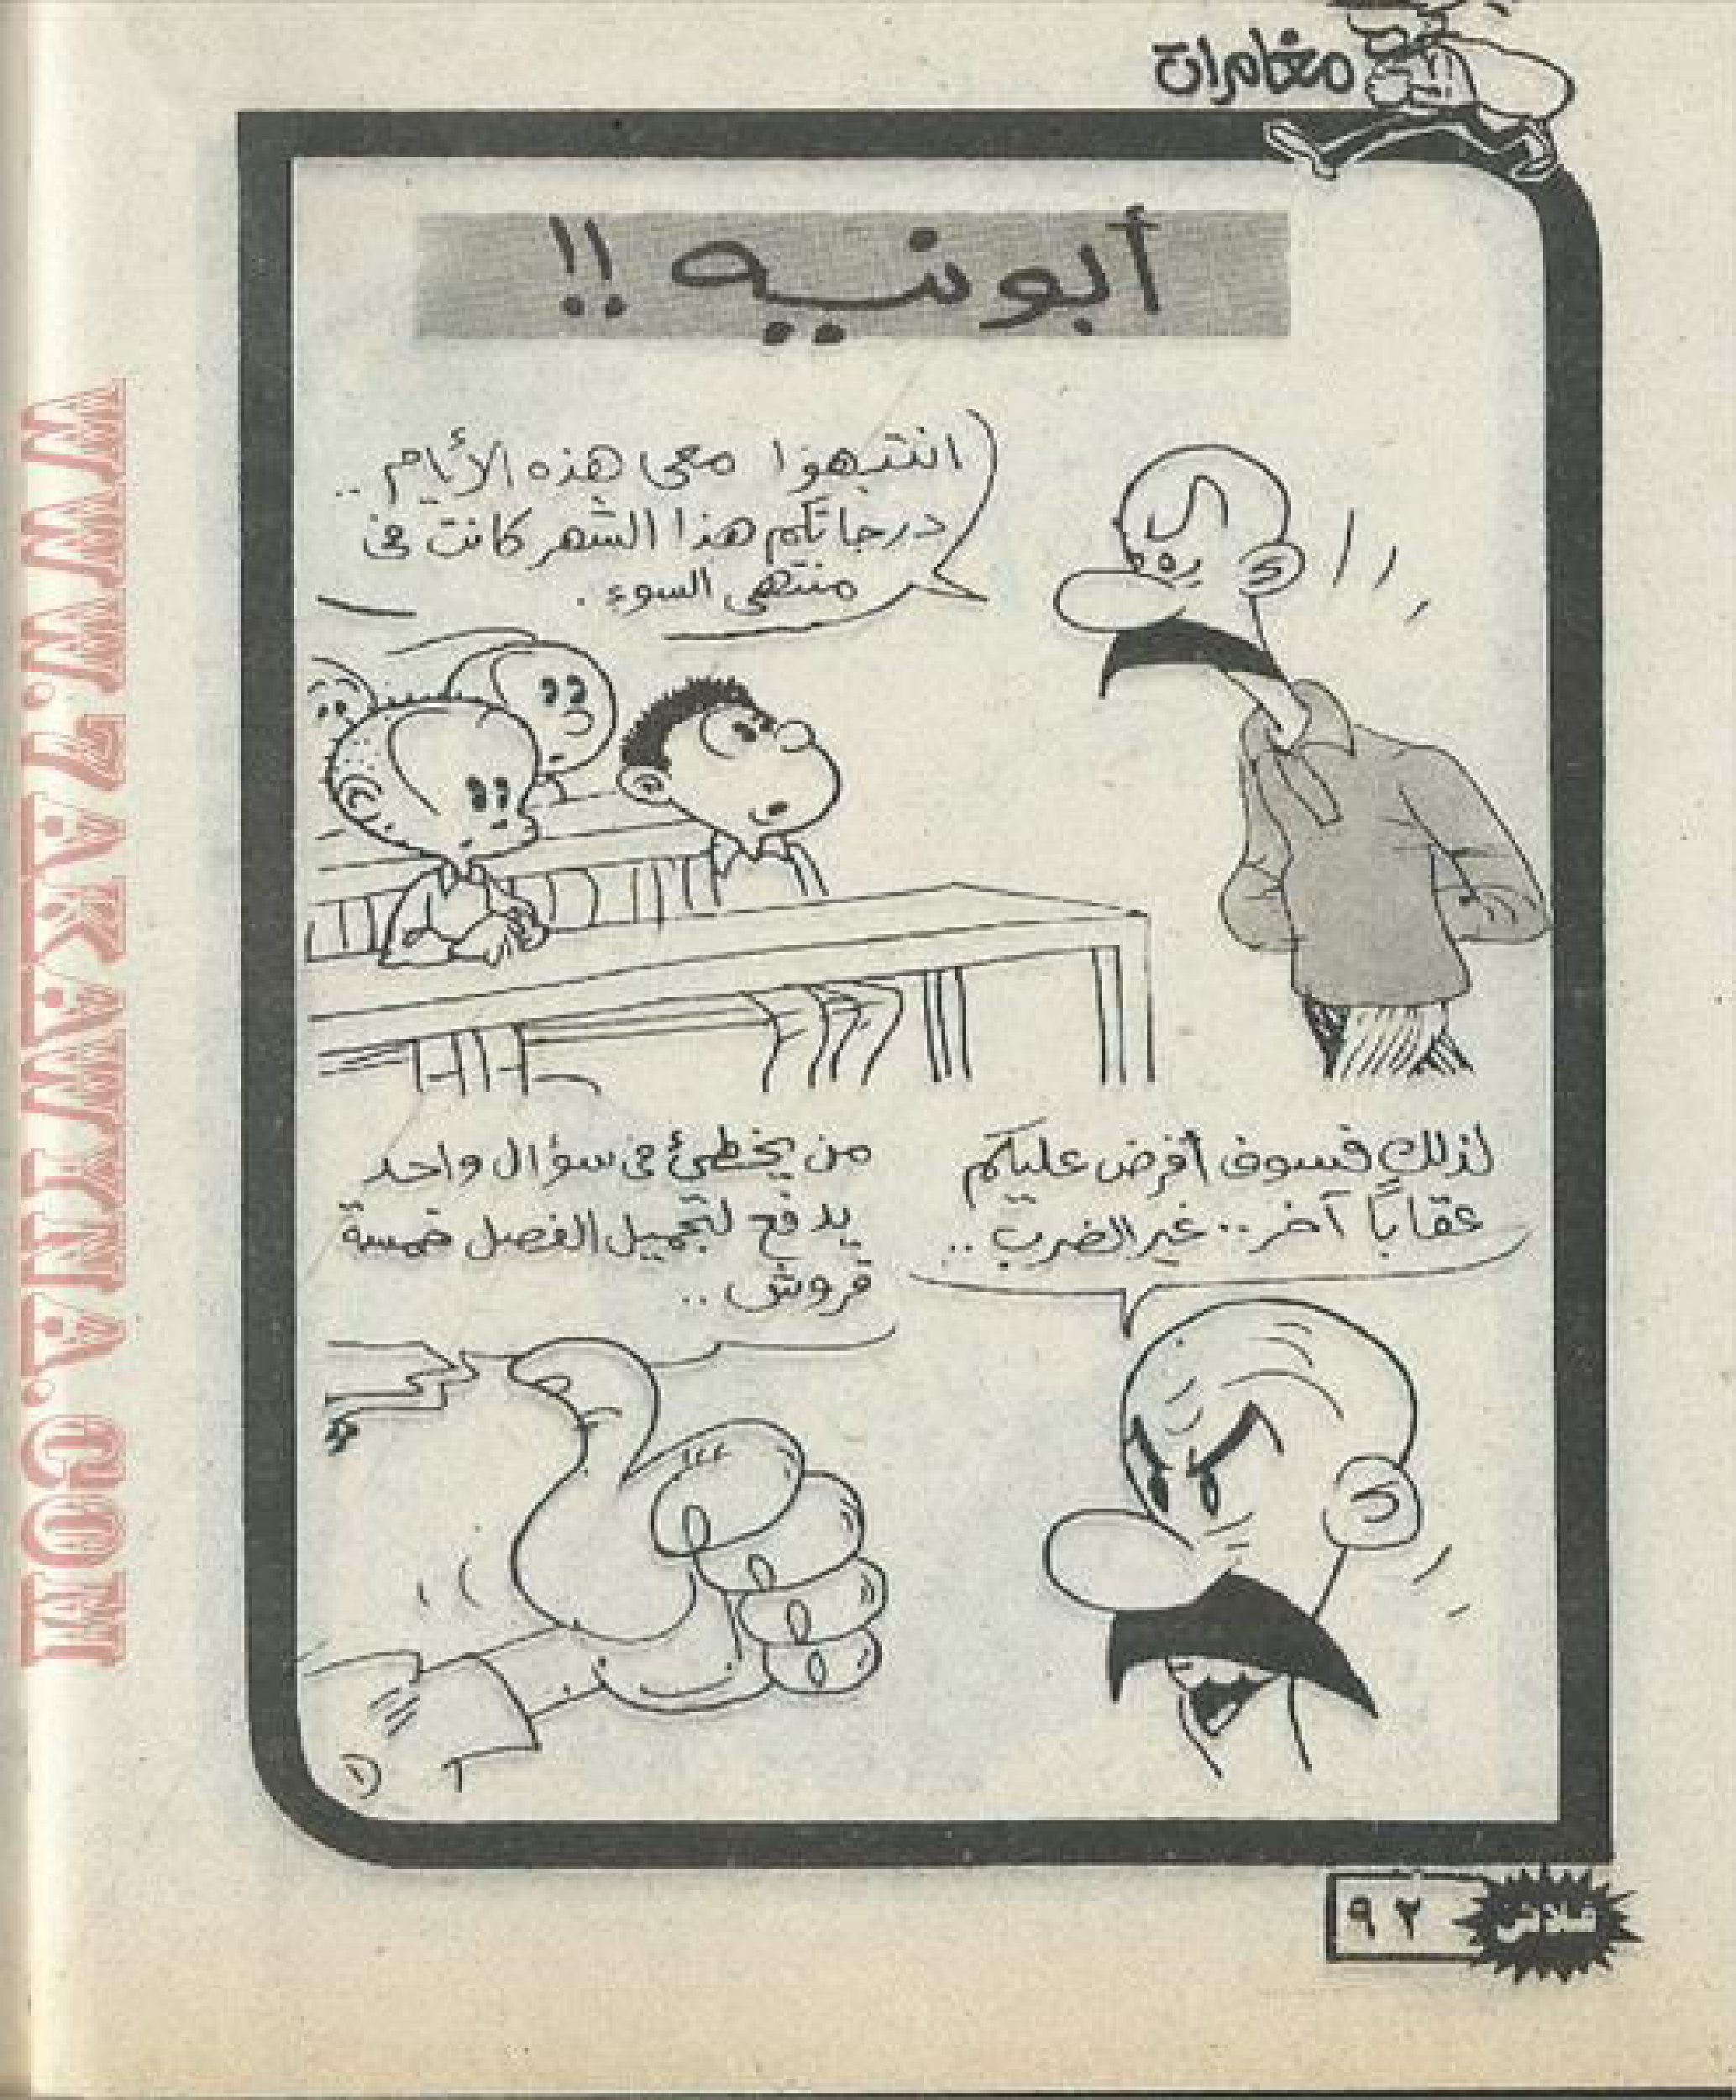 مغامرات
أبونيه !!
انتبهوا معى هذه الأيام ..
درجاتكم هذا الشهر كانت فى
منتهى السوء .
لذلك فسوف أفرض عليكم
عقاباً آخر .. غير الضرب ..
من يخطئ فى سؤال واحد
يدفع لتجميل الفصل خمسة
قروش ..
فلاش
٩٢
WWW.7AKAWINA.COM